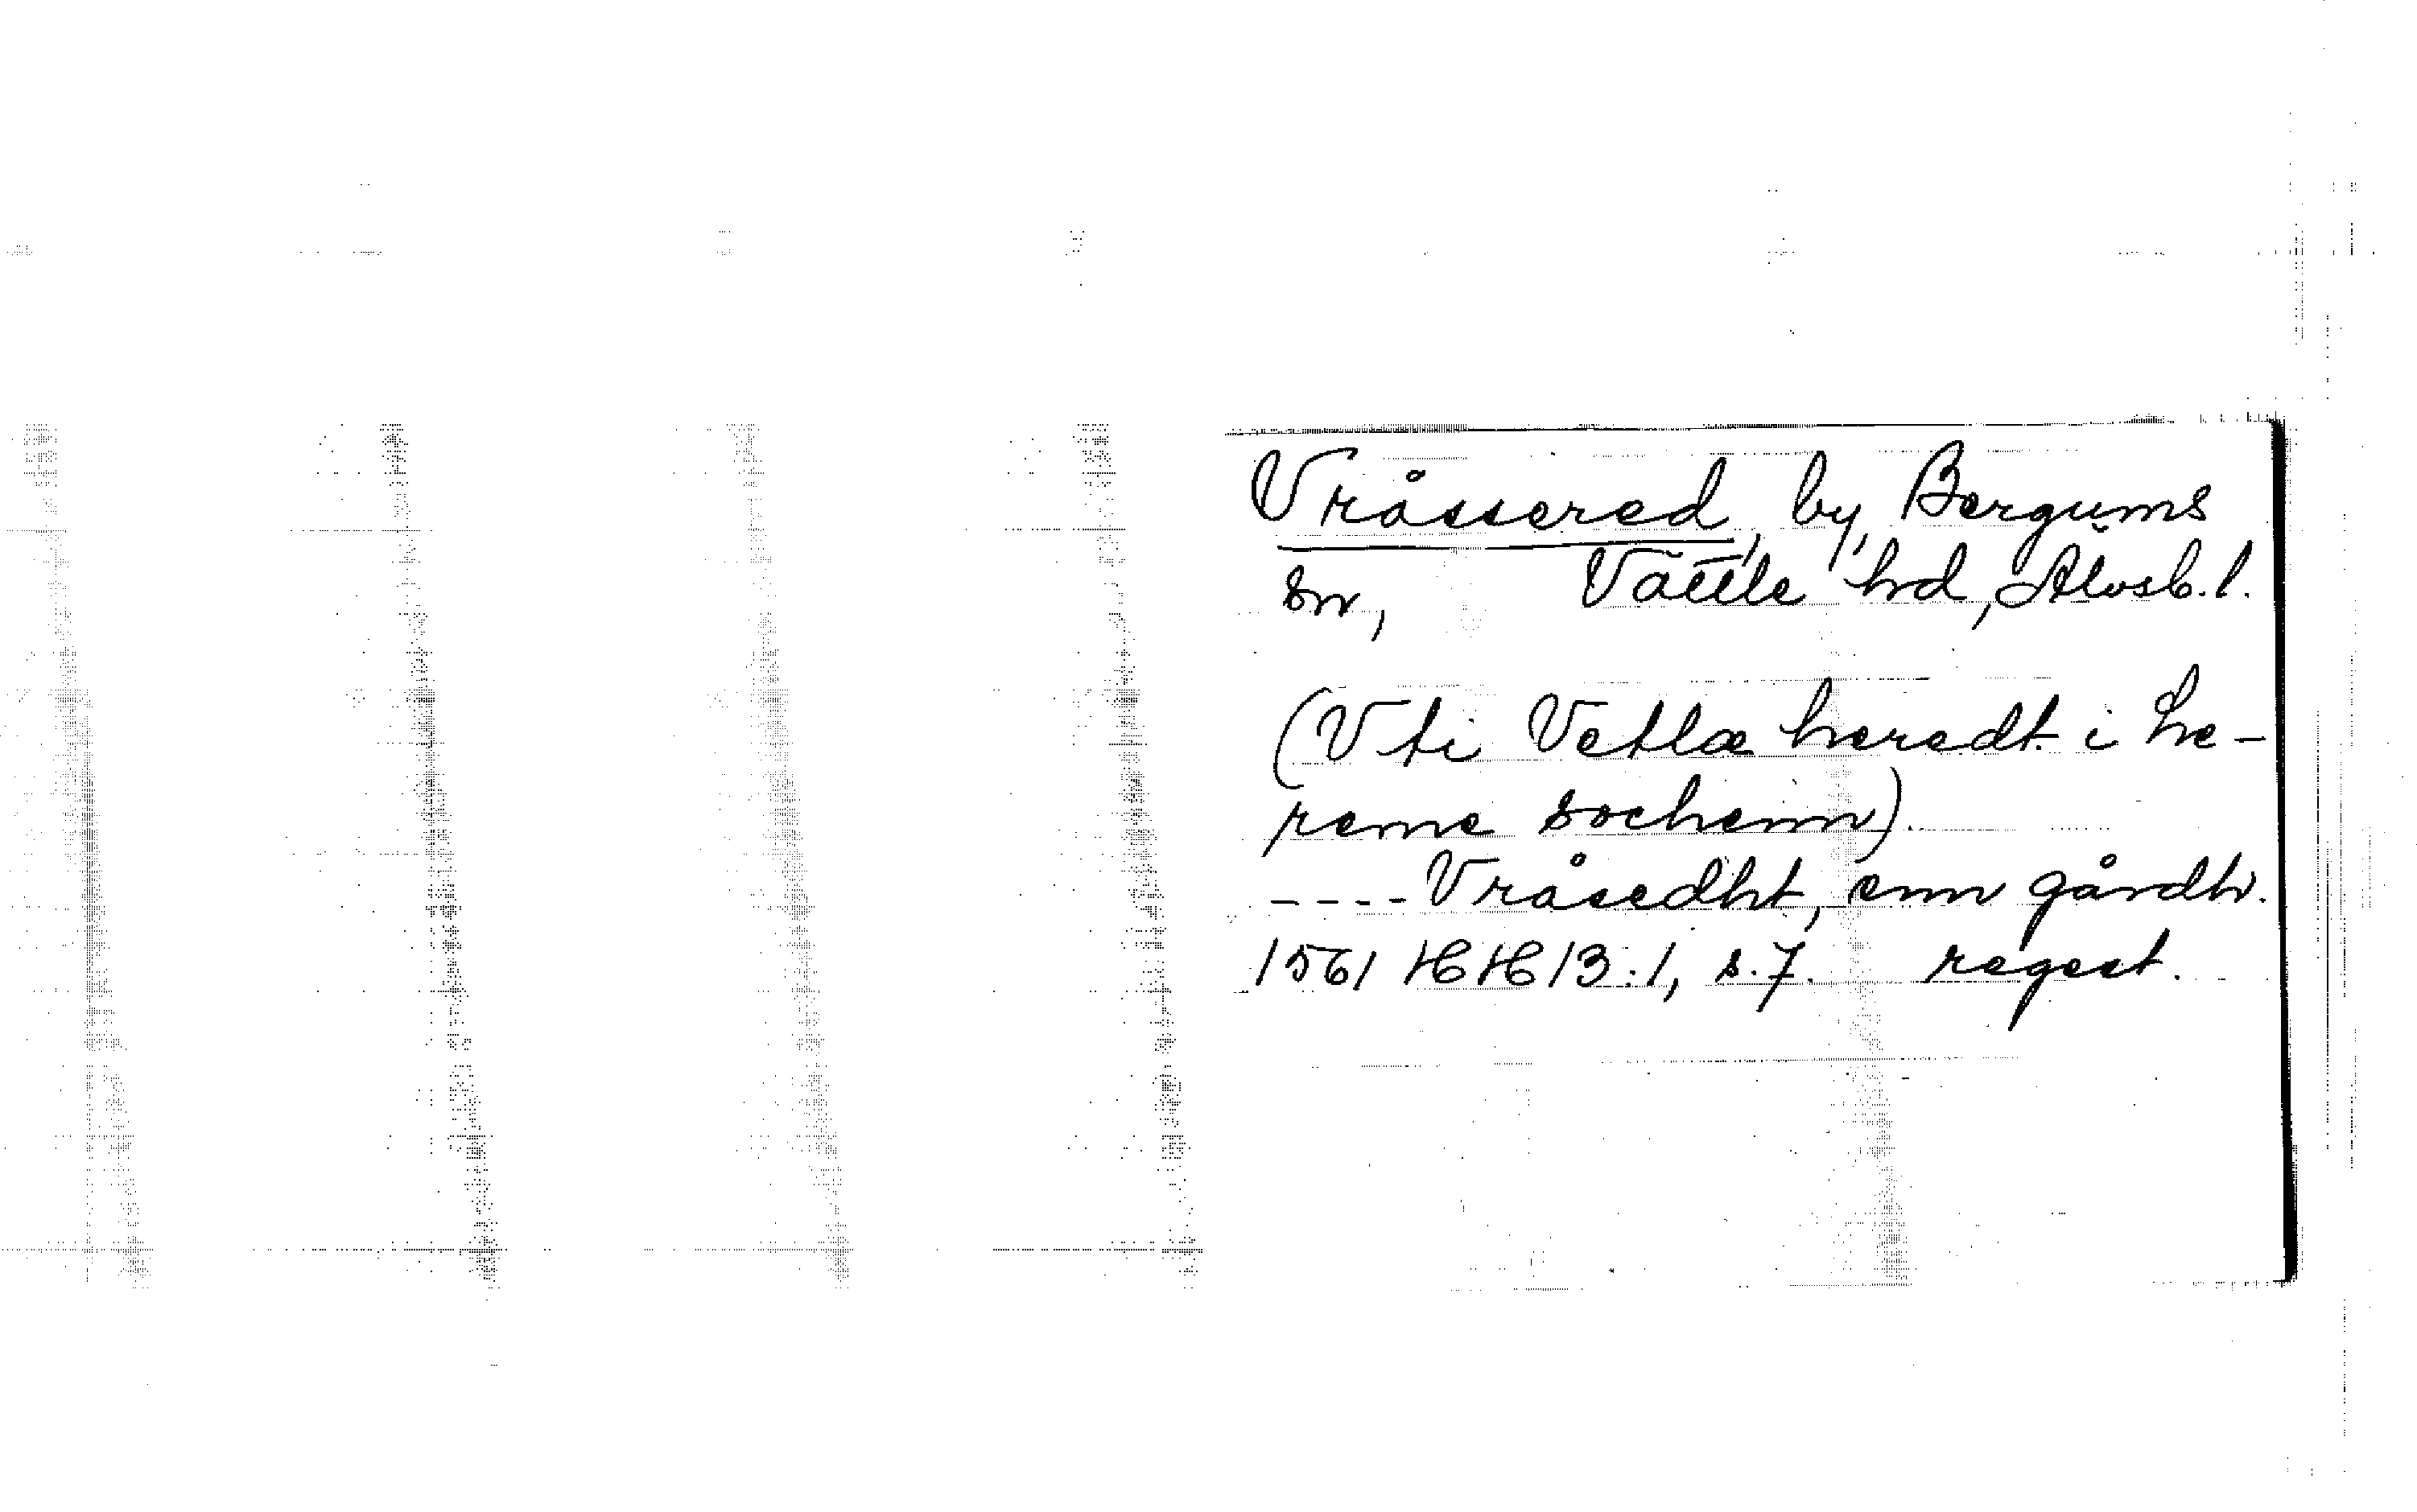 Vråssered, by, Bergums
sn, Vättle hd, Älvsb.l.
(Vti Vetlæ heredt i Le-
reme sochenn).
----Vråsedht, enn gårdh.
1561 HH 13:1, s.7. regest.